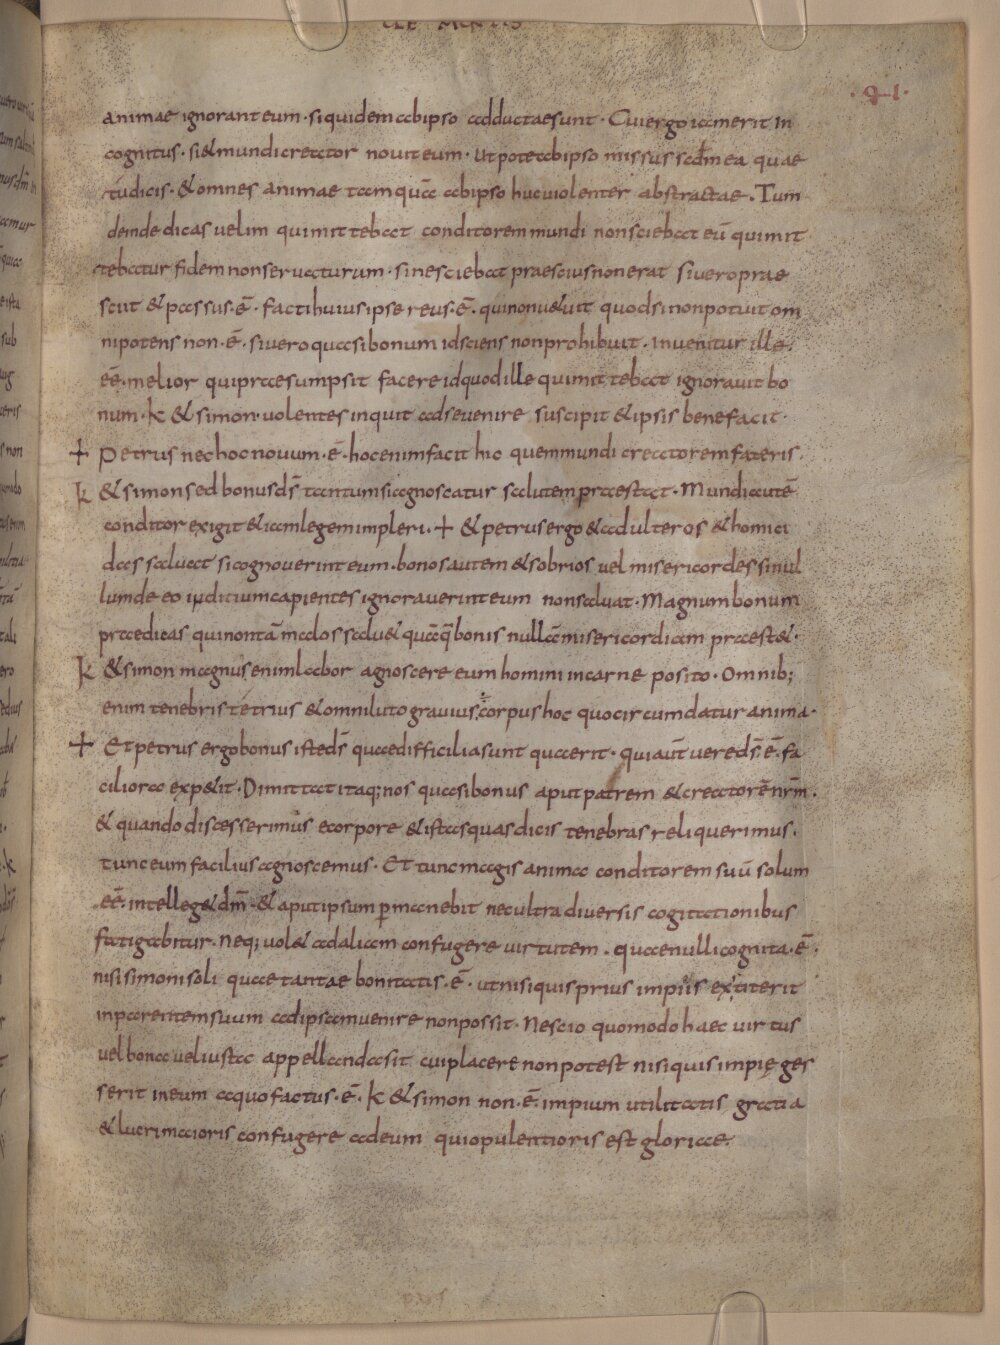 CLEMENTIS
·91·
animae ignorant eum · siquidem ab ipso adductae sunt · Cui ergo iam erit in
cognitus · si & mundi creator nouit eum · utpote ab ipso missus scdm ea quae
tu dicis · & omnes animae tamquā ab ipso huc uiolenter abstractae · Tum
deinde dicas uelim qui mittebat conditorem mundi nonsciebat eū qui mit
tebatur fidem non seruaturum · si nesciebat praescius non erat si uero prae
sciit & passus · ē · facti huius ipse reus · ē · qui non u&uit quod si non potuit om
nipotens non · ē · si uero quasi bonum id sciens non prohibuit · inuenitur ille
eē · melior qui praesumpsit facere id quod ille qui mittebat ignorauit bo
num · K & simon · uolentes inquit ad se uenire suscipit & ipsis bene facit ·
+ Petrus nec hoc nouum · ē · hoc enim facit hic quem mundi creatorem fateris ·
K & simon sed bonus dš tantum si agnoscatur salutem praestat · Mundi autē
conditor exigit & iam legem impleri · + & petrus ergo & adulteros & homici
das saluat si cognouerint eum · bonos autem & sobrios uel misericordes si nul
lum de eo iuditium capientes ignorauerint eum non saluat · Magnum bonum
praedicas qui non tā malos salu& quāq bonis nullā misericordiam praest& ·
K & simon magnus enim labor agnoscere eum homini in carne posito · Omnib;
enim tenebris tetrius & omni luto grauius corpus hoc quo circumdatur anima ·
+ Et petrus ergo bonus iste dš quae difficilia sunt quaerit · qui aūt uere dš · ē · fa
ciliora exp&it · Dimittat itaq; nos quasi bonus aput patrem & creatorē nrm ·
& quando discesserimus e corpore & istas quas dicis tenebras reliquerimus ·
tunc eum facilius agnoscemus · Et tunc magis anima conditorem suū solum
eē · intelleg& dm̄ · & aput ipsum pmanebit nec ultra diuersis cogitationibus
fatigabitur · Neq; uol& ad aliam confugere uirtutem · quae nulli cognita · ē ·
nisi simoni soli quae tantae bonitatis · ē · ut nisi quis prius impius extiterit
in parentem suum ad ipsam uenire non possit · Nescio quomodo haec uirtus
uel bona uel iusta appellanda sit cui placere non potest nisi quis impie ges
serit in eum a quo factus · ē · K & simon non · ē · impium utilitatis gratia
& lucri maioris confugere ad eum qui opulentioris est gloriae ·